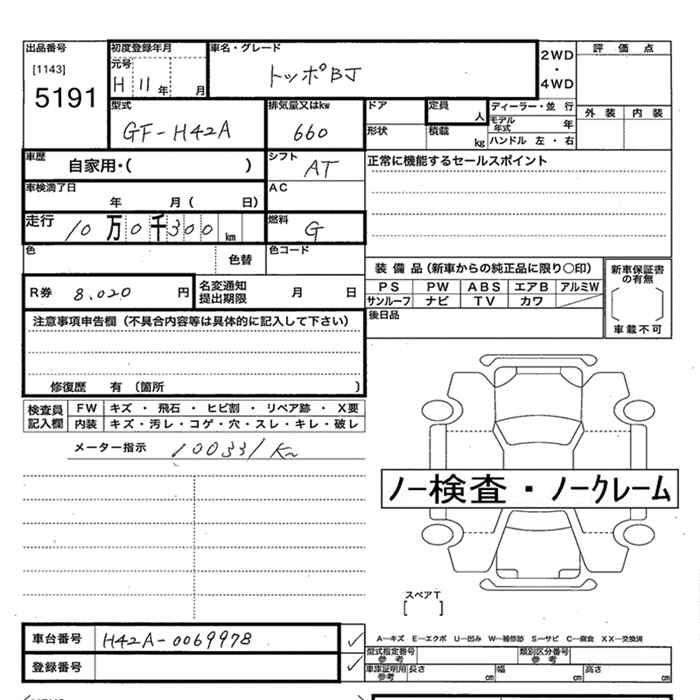 出品番号
[1143]
5191
初度登録年月
元号
H 11 年 月
車名・グレード
トッポBJ
2WD
・
4WD
評価点
外装 内装
型式
GF-H42A
排気量又はkw
660
ドア
形状
定員
人
積載
kg
ディーラー・並 行
モデル年式 年
ハンドル 左・右
車歴
自家用・( )
シフト
AT
正常に機能するセールスポイント
車検満了日
年 月( 日)
AC
走行
10万0千300km
燃料
G
色
色替
色コード
装備品(新車からの純正品に限り○印)
PS PW ABS エアB アルミW
サンルーフ ナビ TV カワ
新車保証書の有無
車載不可
R券
8.020 円
名変通知
提出期限
月 日
後日品
注意事項申告欄(不具合内容等は具体的に記入して下さい)
修復歴 有 (箇所 )
検査員記入欄
FW キズ・飛石・ヒビ割・リペア跡・X要
内装 キズ・汚レ・コゲ・穴・スレ・キレ・破レ
メーター指示 100331Km
ノー検査・ノークレーム
スペアT
[ ]
A―キズ E―エクボ U―凹み W―補修跡 S―サビ C―腐食 XX―交換済
車台番号
H42A-0069978
登録番号
型式指定番号
参考
類別区分番号
参考
車庫証明用
参考
長さ cm
幅 cm
高さ cm